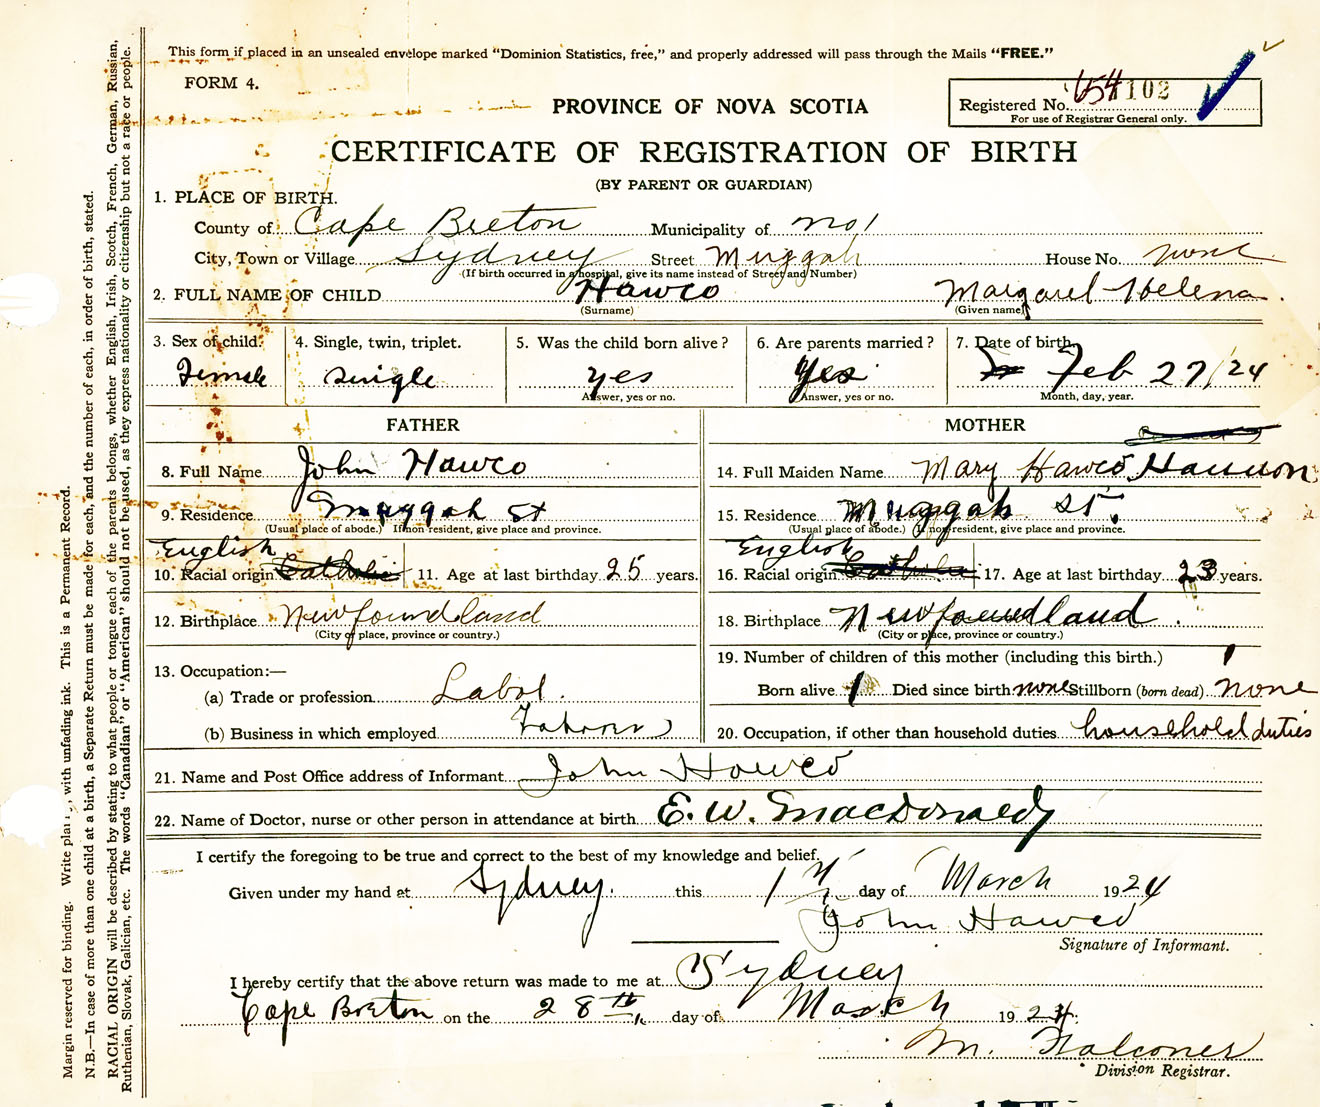 This form if placed in an unsealed envelope marked "Dominion Statistics, free," and properly addressed will pass through the Mails "FREE."
FORM 4.
PROVINCE OF NOVA SCOTIA
Registered No. 654 102
For use of Registrar General only.
CERTIFICATE OF REGISTRATION OF BIRTH
(BY PARENT OR GUARDIAN)
1. PLACE OF BIRTH.
County of Cape Breton Municipality of No 1
City, Town or Village Sydney Street Muggah House No. none
(If birth occurred in a hospital, give its name instead of Street and Number)
2. FULL NAME OF CHILD Hawco Margaret Helena
(Surname) (Given name)
3. Sex of child. 4. Single, twin, triplet. 5. Was the child born alive? 6. Are parents married? 7. Date of birth.
Female single yes Yes Feb 27/24
Answer, yes or no. Answer, yes or no. Month, day, year.
FATHER MOTHER
8. Full Name John Hawco 14. Full Maiden Name Mary Hawco Hannon
9. Residence Muggah St 15. Residence Muggah St.
(Usual place of abode.) If non resident, give place and province. (Usual place of abode.) If non resident, give place and province.
English English
10. Racial origin Catholic 11. Age at last birthday 25 years. 16. Racial origin Catholic 17. Age at last birthday 23 years.
12. Birthplace Newfoundland 18. Birthplace Newfoundland.
(City or place, province or country.) (City or place, province or country.)
13. Occupation:— 19. Number of children of this mother (including this birth.) 1
(a) Trade or profession Labor. Born alive 1 Died since birth none Stillborn (born dead) none
(b) Business in which employed 20. Occupation, if other than household duties household duties
21. Name and Post Office address of Informant John Hawco
22. Name of Doctor, nurse or other person in attendance at birth E. W. MacDonald
I certify the foregoing to be true and correct to the best of my knowledge and belief.
Given under my hand at Sydney. this 17 day of March 1924
John Hawco
Signature of Informant.
I hereby certify that the above return was made to me at Sydney
Cape Breton on the 28th day of March 1924.
M. Falconer
Division Registrar.
Margin reserved for binding. Write plainly, with unfading ink. This is a Permanent Record.
N.B.—In case of more than one child at a birth, a Separate Return must be made for each, and the number of each, in order of birth, stated.
RACIAL ORIGIN will be described by stating to what people or tongue each of the parents belongs, whether English, Irish, Scotch, French, German, Russian,
Ruthenian, Slovak, Galician, etc. The words "Canadian" or "American" should not be used, as they express nationality or citizenship but not a race or people.